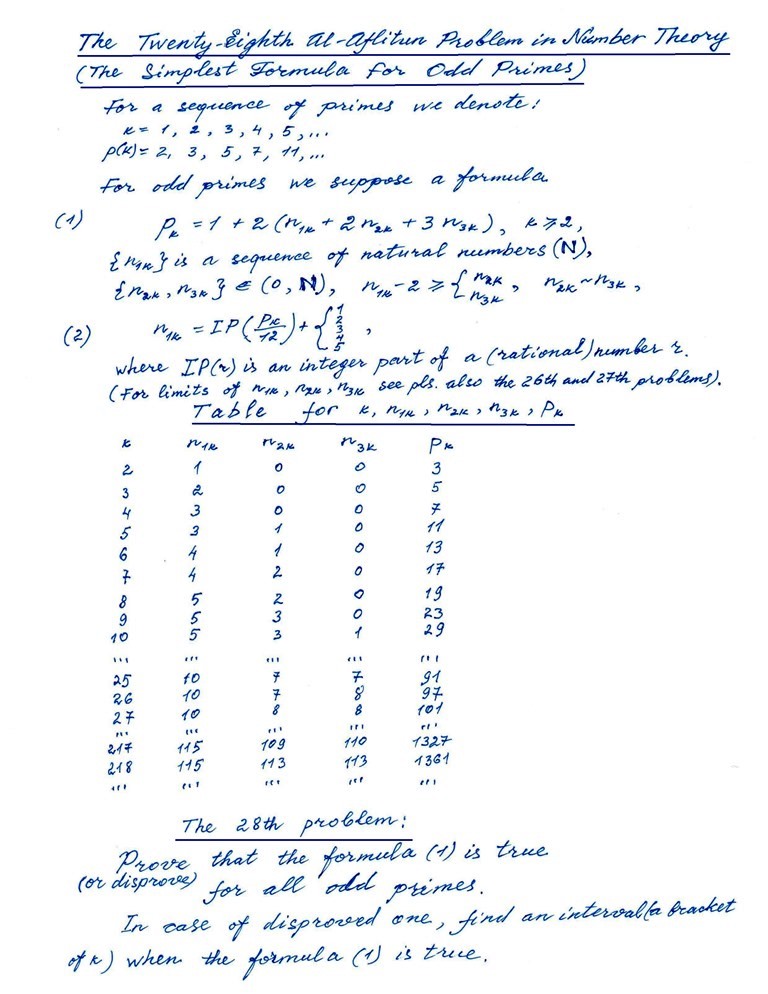 The Twenty-Eighth Al-Aflitun Problem in Number Theory
(The Simplest Formula for Odd Primes)
For a sequence of primes we denote:
k = 1, 2, 3, 4, 5, ...
p(k) = 2, 3, 5, 7, 11, ...
For odd primes we suppose a formula
(1) P_k = 1 + 2 (n_1k + 2 n_2k + 3 n_3k), k ⩾ 2,
{n_1k} is a sequence of natural numbers (N),
{n_2k, n_3k} ∈ (0, N), n_1k - 2 ⩾ { n_2k n_3k , n_2k ~ n_3k ,
(2) n_1k = IP (P_k/12) + { 1 2 3 4 5 ,
where IP(r) is an integer part of a (rational) number r.
(For limits of n_1k, n_2k, n_3k see pls. also the 26th and 27th problems).
Table for k, n_1k, n_2k, n_3k, P_k
k n_1k n_2k n_3k P_k
2 1 0 0 3
3 2 0 0 5
4 3 0 0 7
5 3 1 0 11
6 4 1 0 13
7 4 2 0 17
8 5 2 0 19
9 5 3 0 23
10 5 3 1 29
... ... ... ... ...
25 10 7 7 91
26 10 7 8 97
27 10 8 8 101
... ... ... ... ...
217 115 109 110 1327
218 115 113 113 1361
... ... ... ... ...
The 28th problem:
Prove that the formula (1) is true
(or disprove) for all odd primes.
In case of disproved one, find an interval (a bracket
of k) when the formula (1) is true.